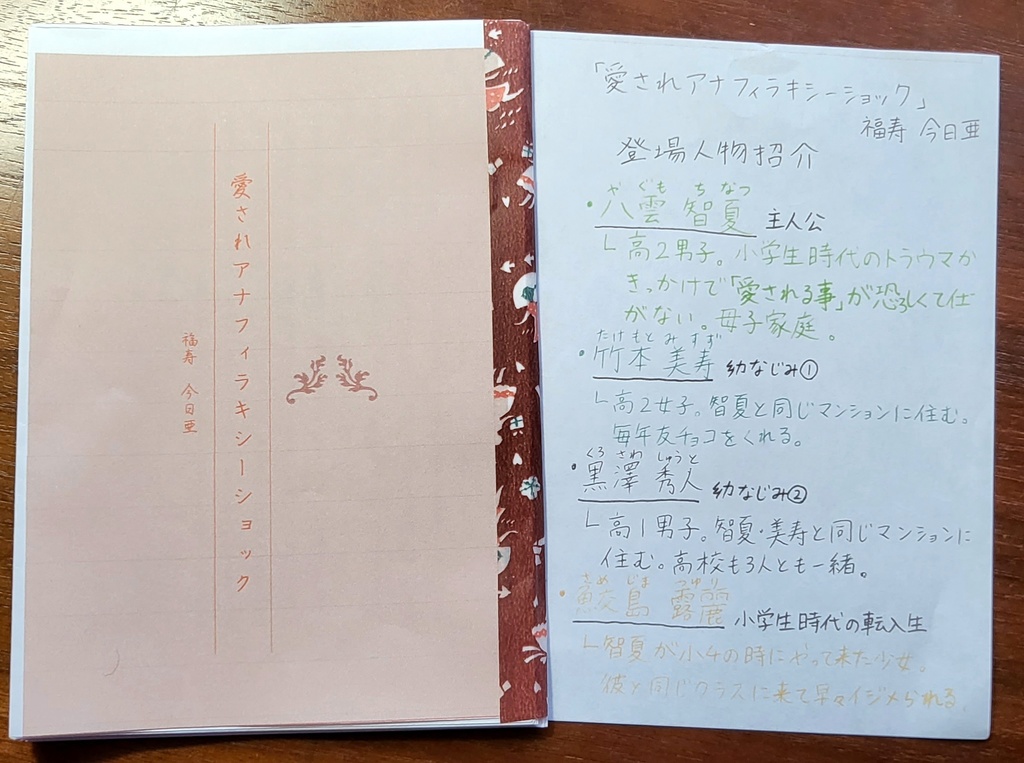 愛されアナフィラキシーショック
福寿 今日亜
「愛されアナフィラキシーショック」
福寿 今日亜
登場人物招介
やぐも ちなつ
・八雲 智夏 主人公
└高2男子。小学生時代のトラウマが
きっかけで「愛される事」が恐ろしくて仕
がない。母子家庭。
たけもと みすず
・竹本 美寿 幼なじみ①
└高2女子。智夏と同じマンションに住む。
毎年友チョコをくれる。
くろさわ しゅうと
・黒澤 秀人 幼なじみ②
└高1男子。智夏・美寿と同じマンションに
住む。高校も3人とも一緒。
さめじま つゆり
・鮫島 露麗 小学生時代の転入生
└智夏が小4の時にやって来た少女。
彼と同じクラスに来て早々イジメられる。